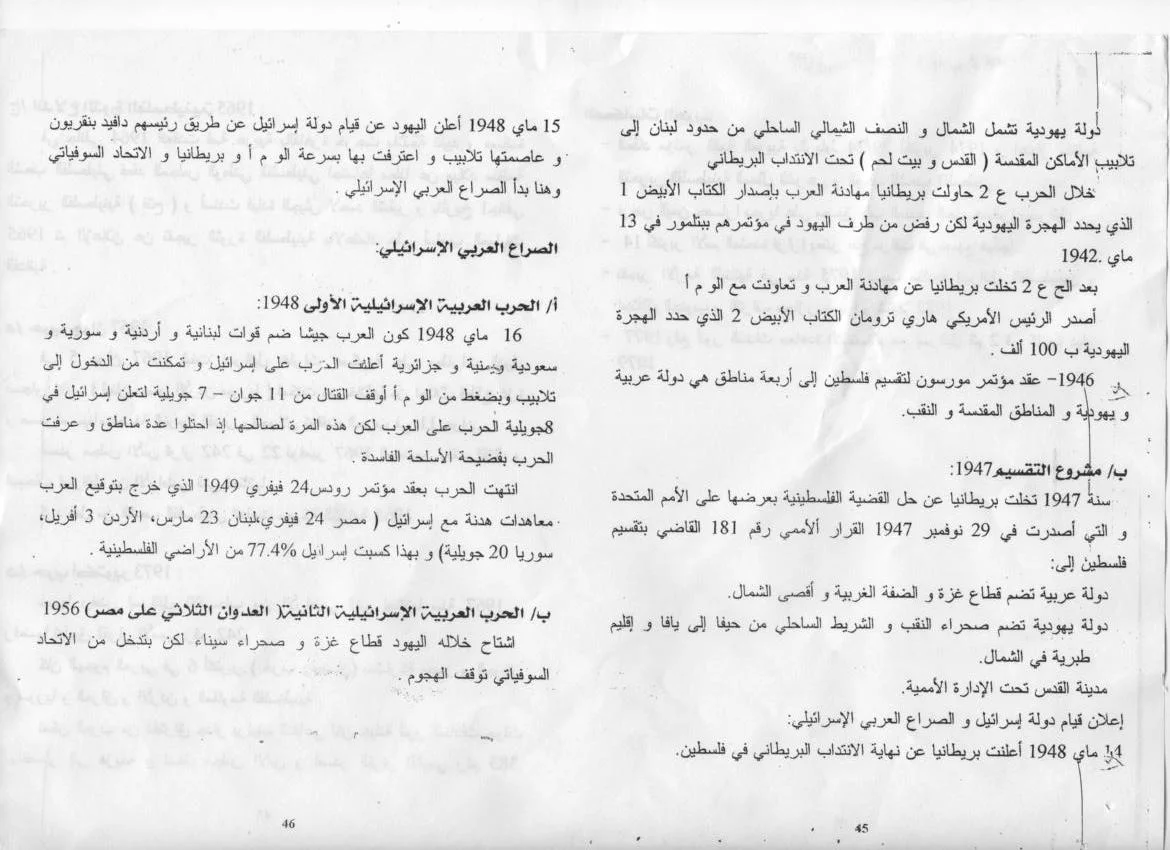 دولة يهودية تشمل الشمال و النصف الشمالي الساحلي من حدود لبنان إلى
تلابيب الأماكن المقدسة ( القدس و بيت لحم ) تحت الانتداب البريطاني
خلال الحرب ع 2 حاولت بريطانيا مهادنة العرب بإصدار الكتاب الأبيض 1
الذي يحدد الهجرة اليهودية لكن رفض من طرف اليهود في مؤتمرهم ببتلمور في 13
ماي .1942
بعد الح ع 2 تخلت بريطانيا عن مهادنة العرب و تعاونت مع الو م أ
أصدر الرئيس الأمريكي هاري ترومان الكتاب الأبيض 2 الذي حدد الهجرة
اليهودية ب 100 ألف .
1946– عقد مؤتمر مورسون لتقسيم فلسطين إلى أربعة مناطق هي دولة عربية
و يهودية و المناطق المقدسة و النقب.
ب/ مشروع التقسيم1947:
سنة 1947 تخلت بريطانيا عن حل القضية الفلسطينية بعرضها على الأمم المتحدة
و التي أصدرت في 29 نوفمبر 1947 القرار الأممي رقم 181 القاضي بتقسيم
فلسطين إلى:
دولة عربية تضم قطاع غزة و الضفة الغربية و أقصى الشمال.
دولة يهودية تضم صحراء النقب و الشريط الساحلي من حيفا إلى يافا و إقليم
طبرية في الشمال.
مدينة القدس تحت الإدارة الأممية.
إعلان قيام دولة إسرائيل و الصراع العربي الإسرائيلي:
14 ماي 1948 أعلنت بريطانيا عن نهاية الانتداب البريطاني في فلسطين.
45
15 ماي 1948 أعلن اليهود عن قيام دولة إسرائيل عن طريق رئيسهم دافيد بنقريون
و عاصمتها تلابيب و اعترفت بها بسرعة الو م أ و بريطانيا و الاتحاد السوفياتي
وهنا بدأ الصراع العربي الإسرائيلي .
الصراع العربي الإسرائيلي:
أ/ الحرب العربية الإسرائيلية الأولى 1948:
16 ماي 1948 كون العرب جيشا ضم قوات لبنانية و أردنية و سورية و
سعودية ويمنية و جزائرية أعلنت الحرب على إسرائيل و تمكنت من الدخول إلى
تلابيب وبضغط من الو م أ أوقف القتال من 11 جوان – 7 جويلية لتعلن إسرائيل في
8جويلية الحرب على العرب لكن هذه المرة لصالحها إذ احتلوا عدة مناطق و عرفت
الحرب بفضيحة الأسلحة الفاسدة .
انتهت الحرب بعقد مؤتمر رودس24 فيفري 1949 الذي خرج بتوقيع العرب
معاهدات هدنة مع إسرائيل ( مصر 24 فيفري،لبنان 23 مارس، الأردن 3 أفريل،
سوريا 20 جويلية) و بهذا كسبت إسرائيل 77.4% من الأراضي الفلسطينية .
ب/ الحرب العربية الإسرائيلية الثانية( العدوان الثلاثي على مصر) 1956
اشتاح خلاله اليهود قطاع غزة و صحراء سيناء لكن بتدخل من الاتحاد
السوفياتي توقف الهجوم .
46